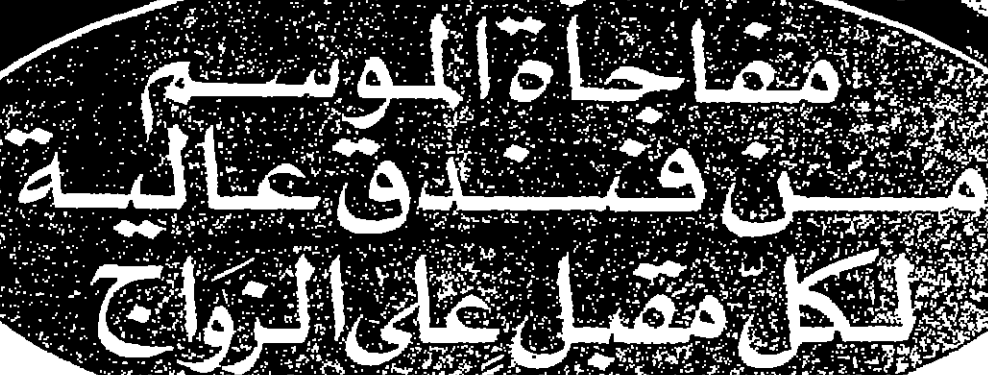 مفاجأة الموسم
من فندق عالية
لكلّ مقبل على الزواج